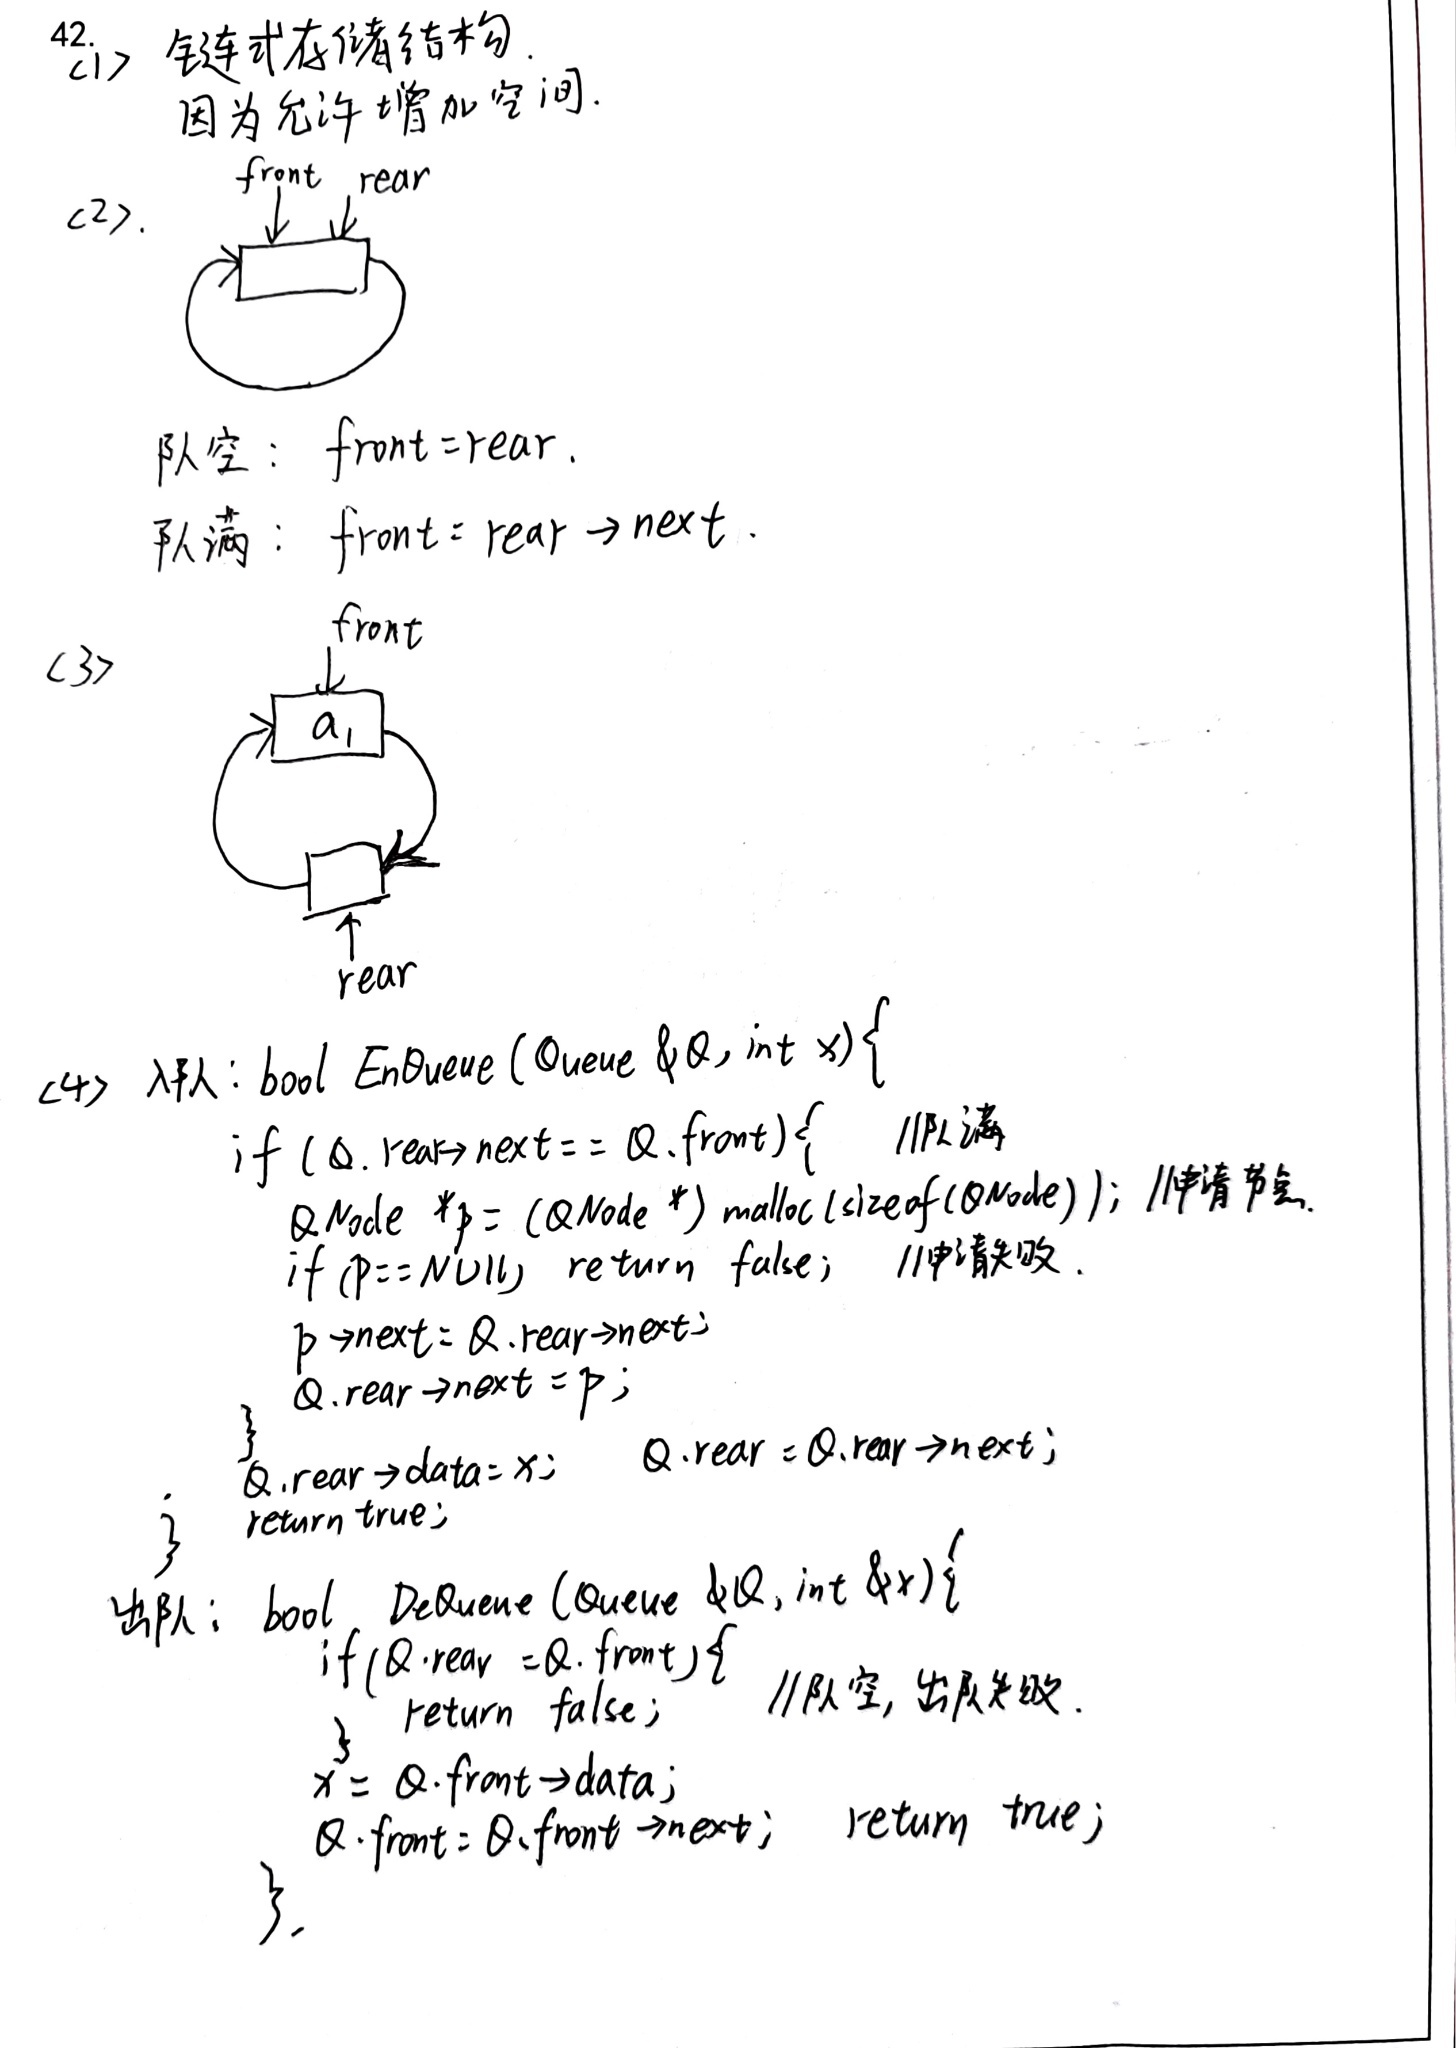 42.
<1> 链式存储结构.
因为允许增加空间.
front rear
<2>.
队空: front=rear.
队满: front=rear→next.
front
<3>
a1
rear
<4> 入队: bool EnQueue(Queue &Q, int x){
if(Q.rear→next==Q.front){ //队满
QNode *p=(QNode *)malloc(sizeof(QNode)); //申请节点.
if(p==NULL) return false; //申请失败.
p→next=Q.rear→next;
Q.rear→next=p;
}
Q.rear→data=x; Q.rear=Q.rear→next;
return true;
}
出队: bool DeQueue(Queue &Q, int &x){
if(Q.rear=Q.front){
return false; //队空, 出队失败.
}
x=Q.front→data;
Q.front=Q.front→next; return true;
}.